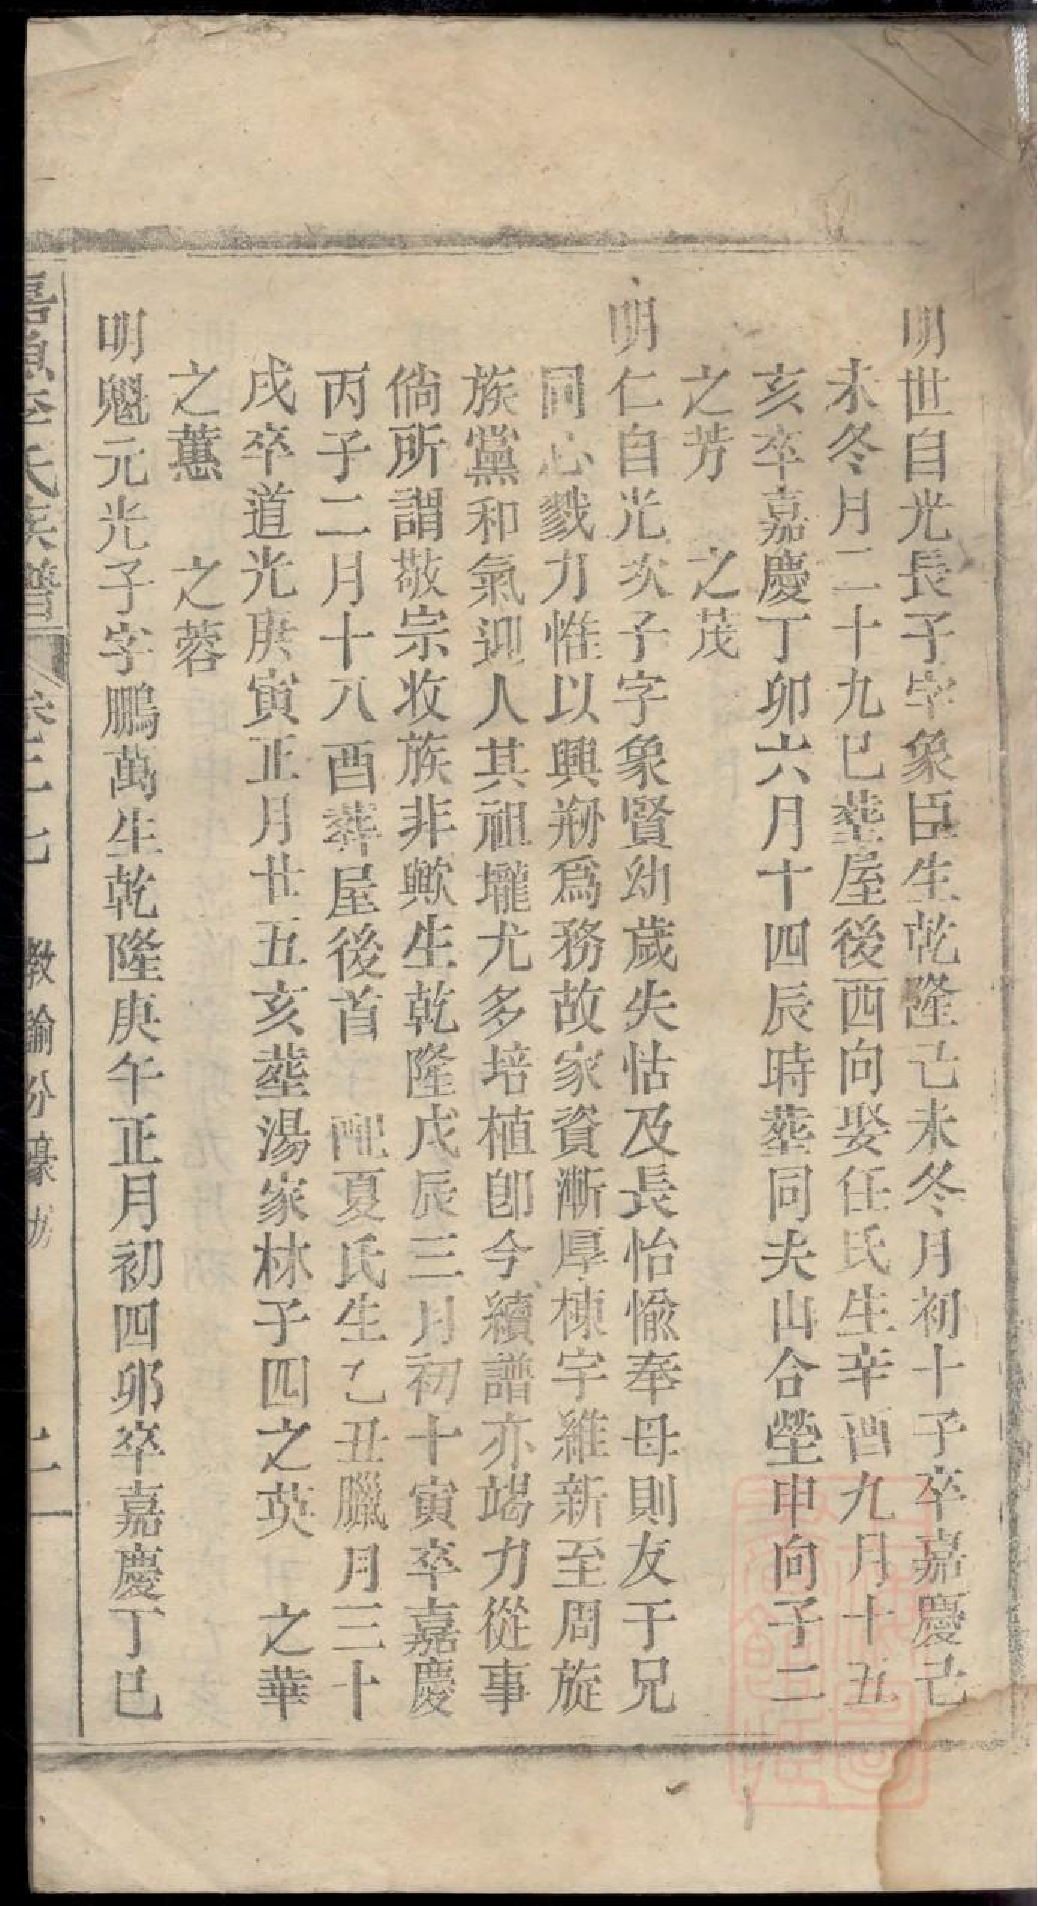 明世自光長子字象臣生乾隆己未冬月初十子卒嘉慶己
未冬月二十九巳塟屋後西向娶任氏生辛酉九月十五
亥卒嘉慶丁卯六月十四辰時塟同夫山合塋申向子二
之芳　之茂
明仁自光次子字象賢幼歲失怙及長怡愉奉母則友于兄
同心戮力惟以興剏爲務故家資漸厚棟宇維新至周旋
族黨和氣迎人其祖壠尤多培植卽今續譜亦竭力從事
倘所謂敬宗收族非歟生乾隆戊辰三月初十寅卒嘉慶
丙子二月十八酉葬屋後首　配夏氏生乙丑臘月三十
戌卒道光庚寅正月廿五亥塟湯家林子四之英　之華
之蕙　之蓉
明魁元光子字鵬萬生乾隆庚午正月初四卯卒嘉慶丁巳
嘉魚李氏族譜　卷二七　教諭公濠房